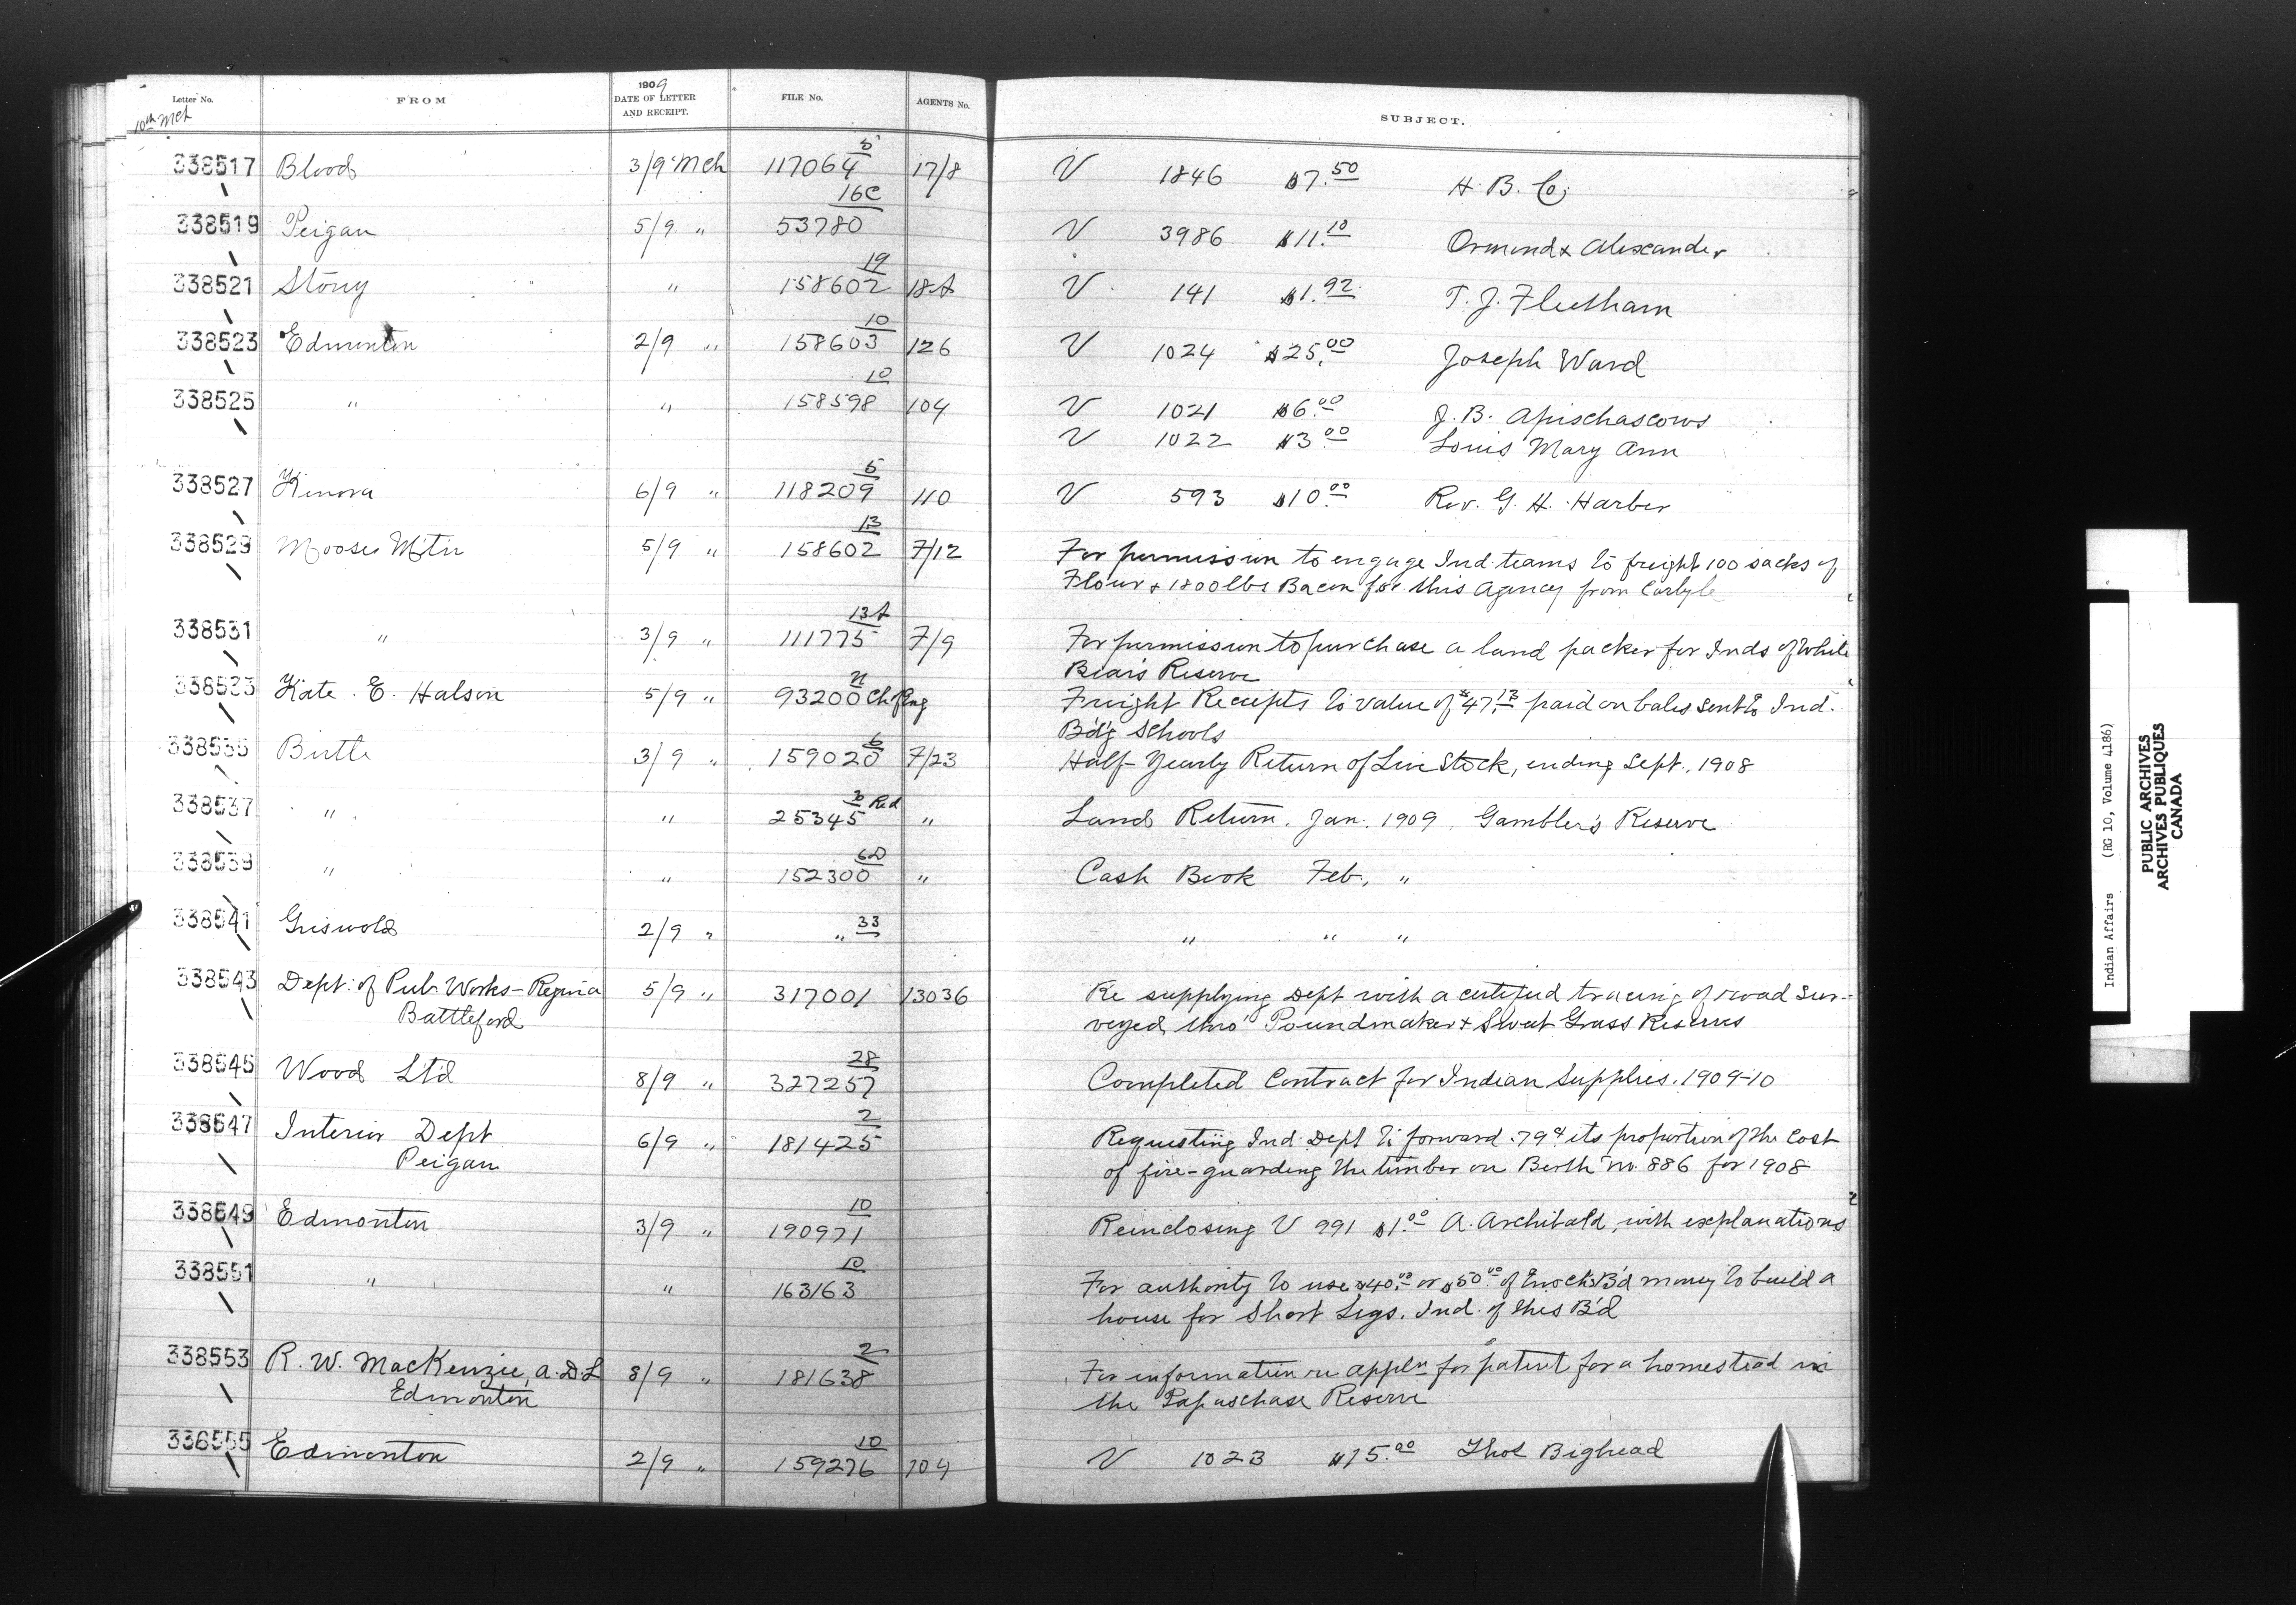 Letter No. FROM 1909 DATE OF LETTER AND RECEIPT. FILE No. AGENTS No. SUBJECT.
10th Mch
338517 Blood 3/9 Mch 117064 5 17/8 V 1846 $7.50 H. B. Co.
338519 Peigan 5/9 " 53780 16C V 3986 $11.10 Ormond & Alexander
338521 Stony " 158602 19 18A V 141 $1.92 T. J. Fleetham
338523 Edmonton 2/9 " 158603 10 126 V 1024 $25.00 Joseph Ward
338525 " " 158598 10 104 V 1021 $6.00 J. B. Apischascows
V 1022 $3.00 Louis Mary Ann
338527 Kenora 6/9 " 118209 5 110 V 593 $10.00 Rev. G. H. Harber
338529 Moose Mtn 5/9 " 158602 13 7/12 For permission to engage Ind. teams to freight 100 sacks of
Flour & 1800 lbs Bacon for this Agency from Carlyle
338531 " 3/9 " 111775 13A 7/9 For permission to purchase a land packer for Inds of White
Bear's Reserve
338533 Kate E. Halson 5/9 " 93200 Ch of Eng Freight Receipts to value of $47.13 paid on bales sent to Ind.
B'd'g Schools
338535 Birtle 3/9 " 159020 6 7/23 Half-Yearly Return of Live Stock, ending Sept., 1908
338537 " " 25345 3 Red " Land Return. Jan. 1909, Gambler's Reserve
338539 " " 152300 6D " Cash Book Feb., "
338541 Griswold 2/9 " " 33 " " "
338543 Dept. of Pub. Works - Regina 5/9 " 317001 13036 Re supplying Dept with a certified tracing of road sur-
Battleford veyed thro' Poundmaker & Sweet Grass Reserves
338545 Wood Ltd 8/9 " 327257 28 Completed Contract for Indian Supplies. 1909-10
338547 Interior Dept 6/9 " 181425 2 Requesting Ind. Dept to forward .79¢ its proportion of the cost
Peigan of fire-guarding the timber on Berth no. 886 for 1908
338549 Edmonton 3/9 " 190971 10 Reinclosing V 991 $1.00 A. Archibald, with explanations
338551 " " 163163 10 For authority to use $40.00 or $50.00 of Enoch's B'd money to build a
house for Short Legs, Ind. of this B'd
338553 R. W. MacKenzie, A.D.L 8/9 " 181638 2 For information re appln for patent for a homestead in
Edmonton the Papaschase Reserve
338555 Edmonton 2/9 " 159276 10 104 V 1023 $15.00 Thos Bighead
Indian Affairs (RG 10, Volume 4186)
PUBLIC ARCHIVES
ARCHIVES PUBLIQUES
CANADA